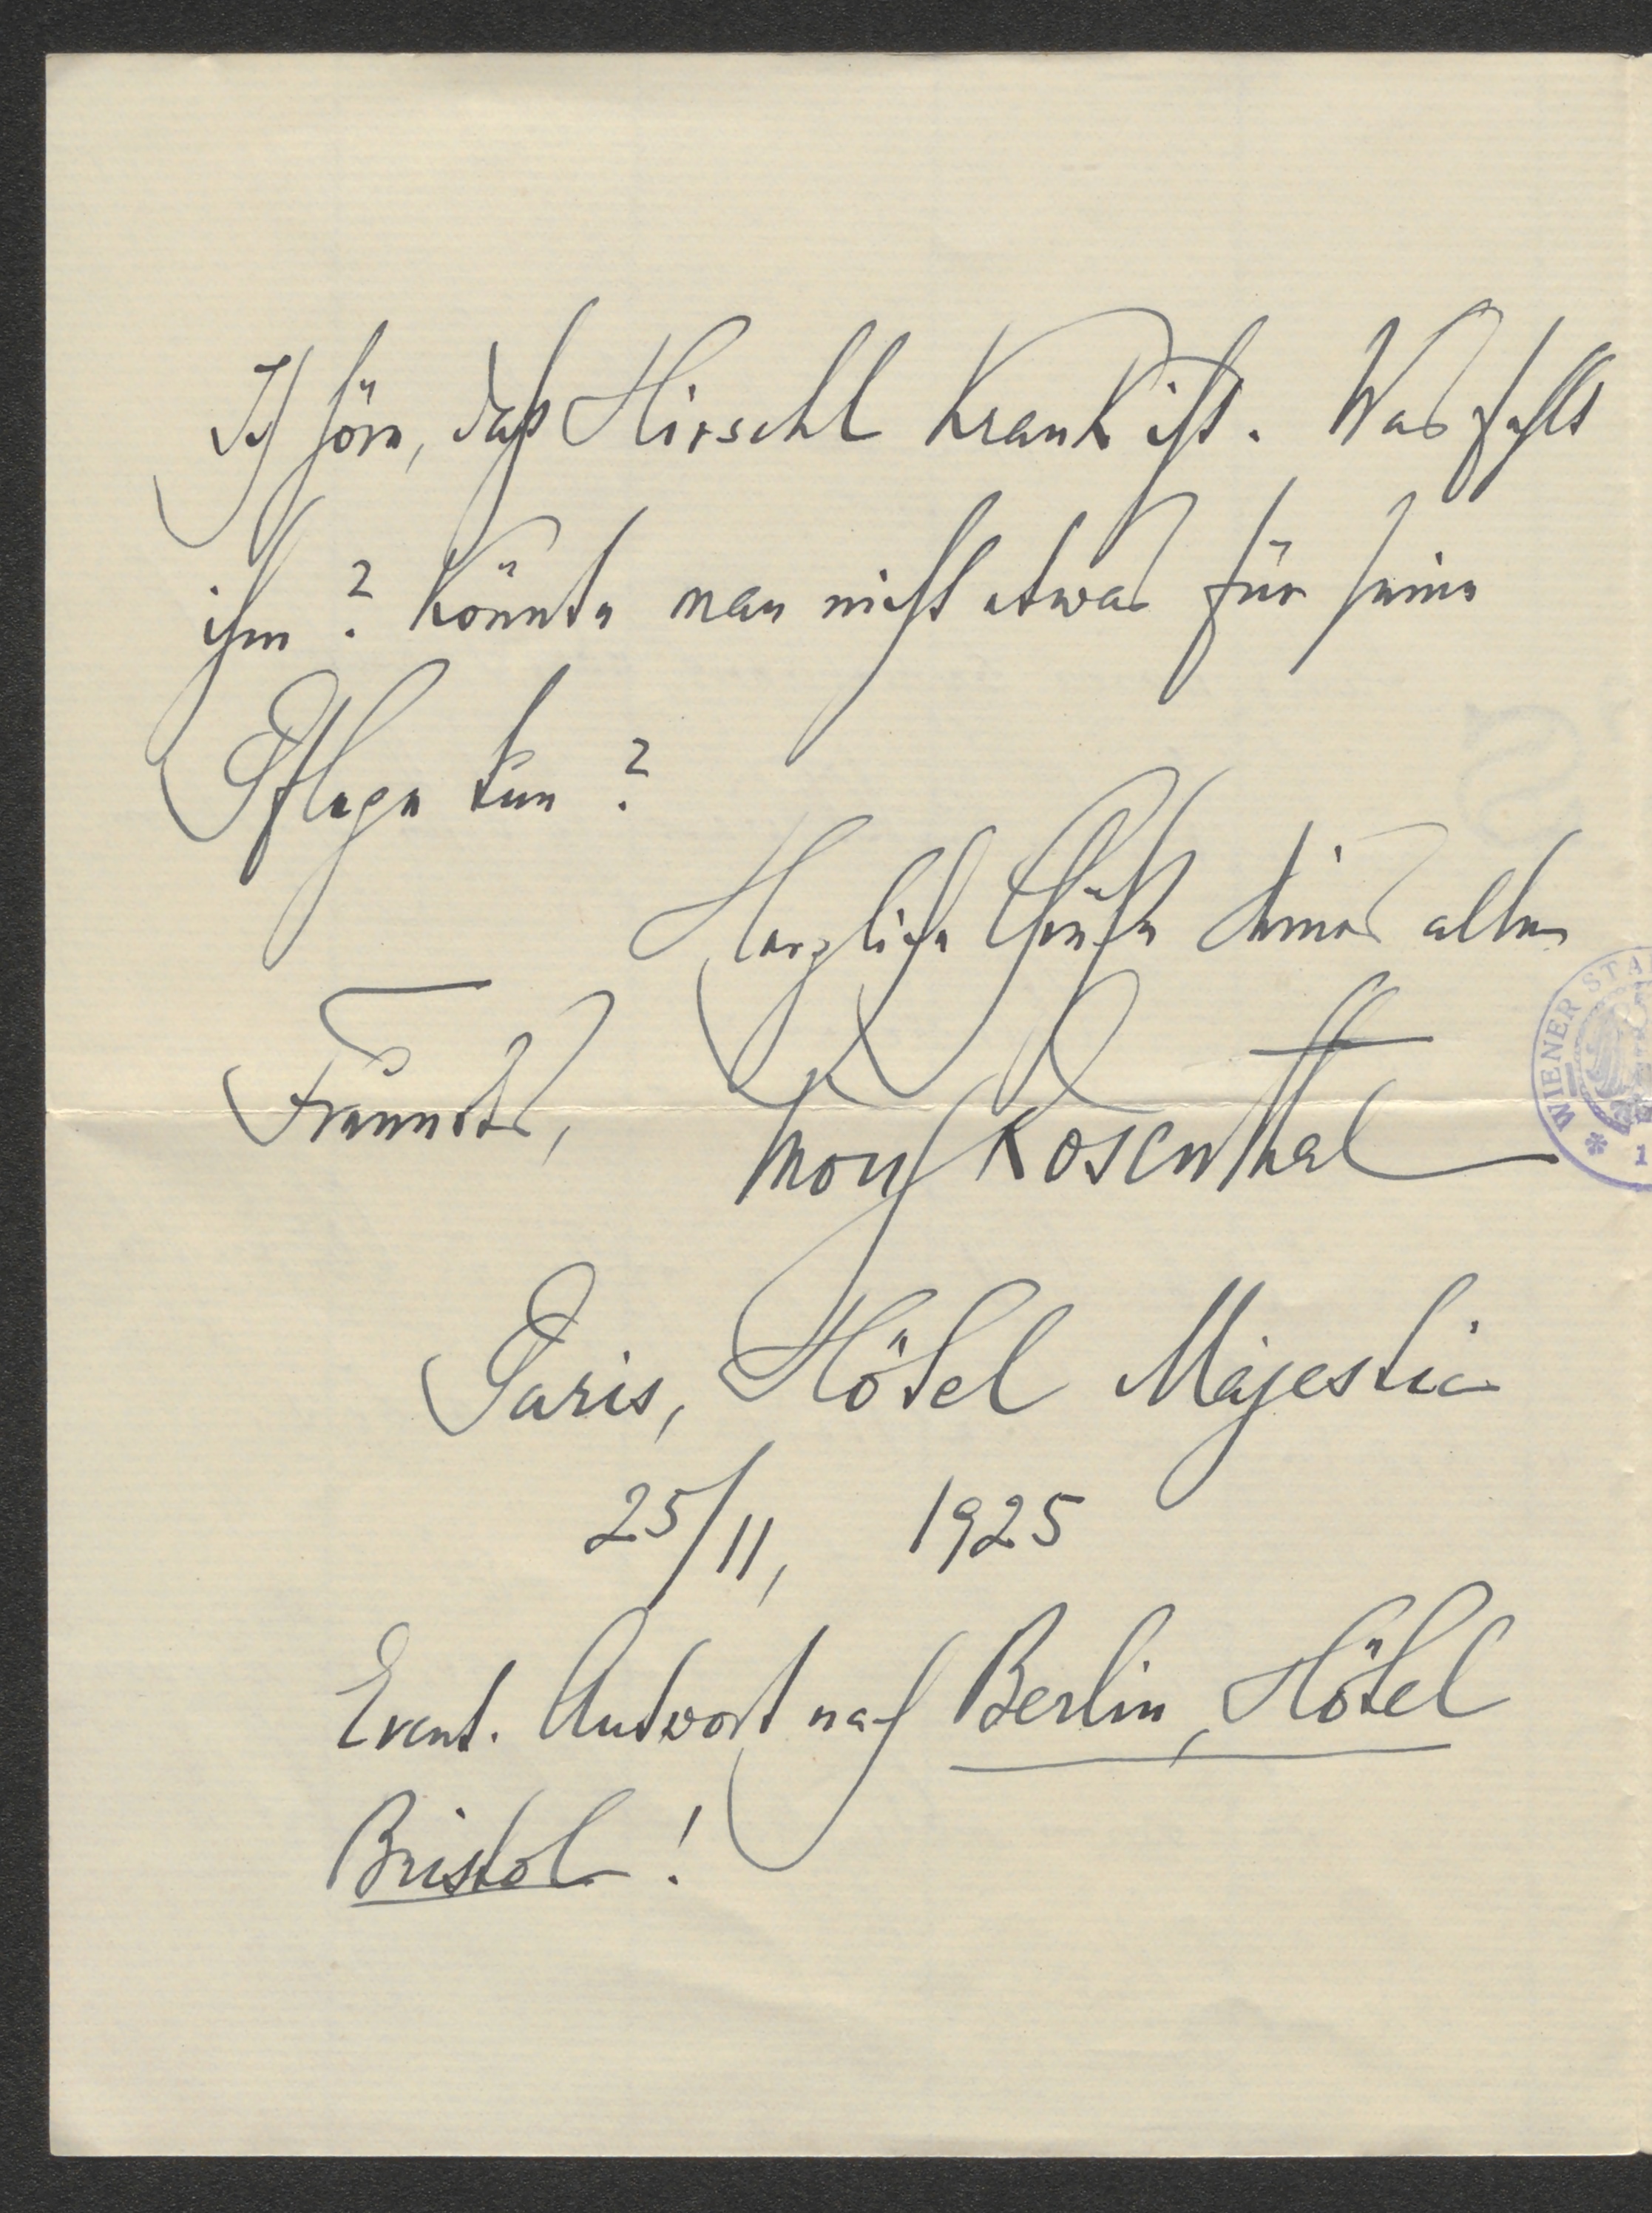 Ich höre, daß Hirschl krank ist. Was fehlt
ihm? Könnte man nicht etwas für seine
Pflege tun?
Herzliche Grüße Deines alten
Freundes,
Moriz Rosenthal
Paris, Hôtel Majestic
25/11, 1925
Event. Antwort nach Berlin, Hôtel
Bristol!
WIENER STA
* 1